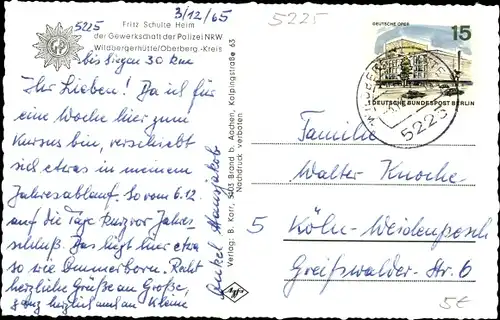 3/12/65
5225
5225
Fritz Schulte Heim
der Gewerkschaft der Polizei NRW
Wildbergerhütte/Oberberg.-Kreis
bis Siegen 30 km
Ihr Lieben! Da ich für
eine Woche hier zum
Kursus bin, verschiebt
sich etwas in meinem
Jahresablauf. So vom 6.12.
auf die Tage kurz vor Jahres-
schluß. Das liegt hier etwa
so wie Ommerborn. Recht
herzliche Grüße an Große,
ganz herzlich auch an Kleine
Onkel Hansjakob
Verlag: B. Karr, 5103 Brand b. Aachen, Kolpingstraße 63
Nachdruck verboten
DEUTSCHE OPER
15
DEUTSCHE BUNDESPOST BERLIN
5223
Familie
Walter Knoche
5 Köln-Weidenpesch
Greifswalder-Str. 6
5€